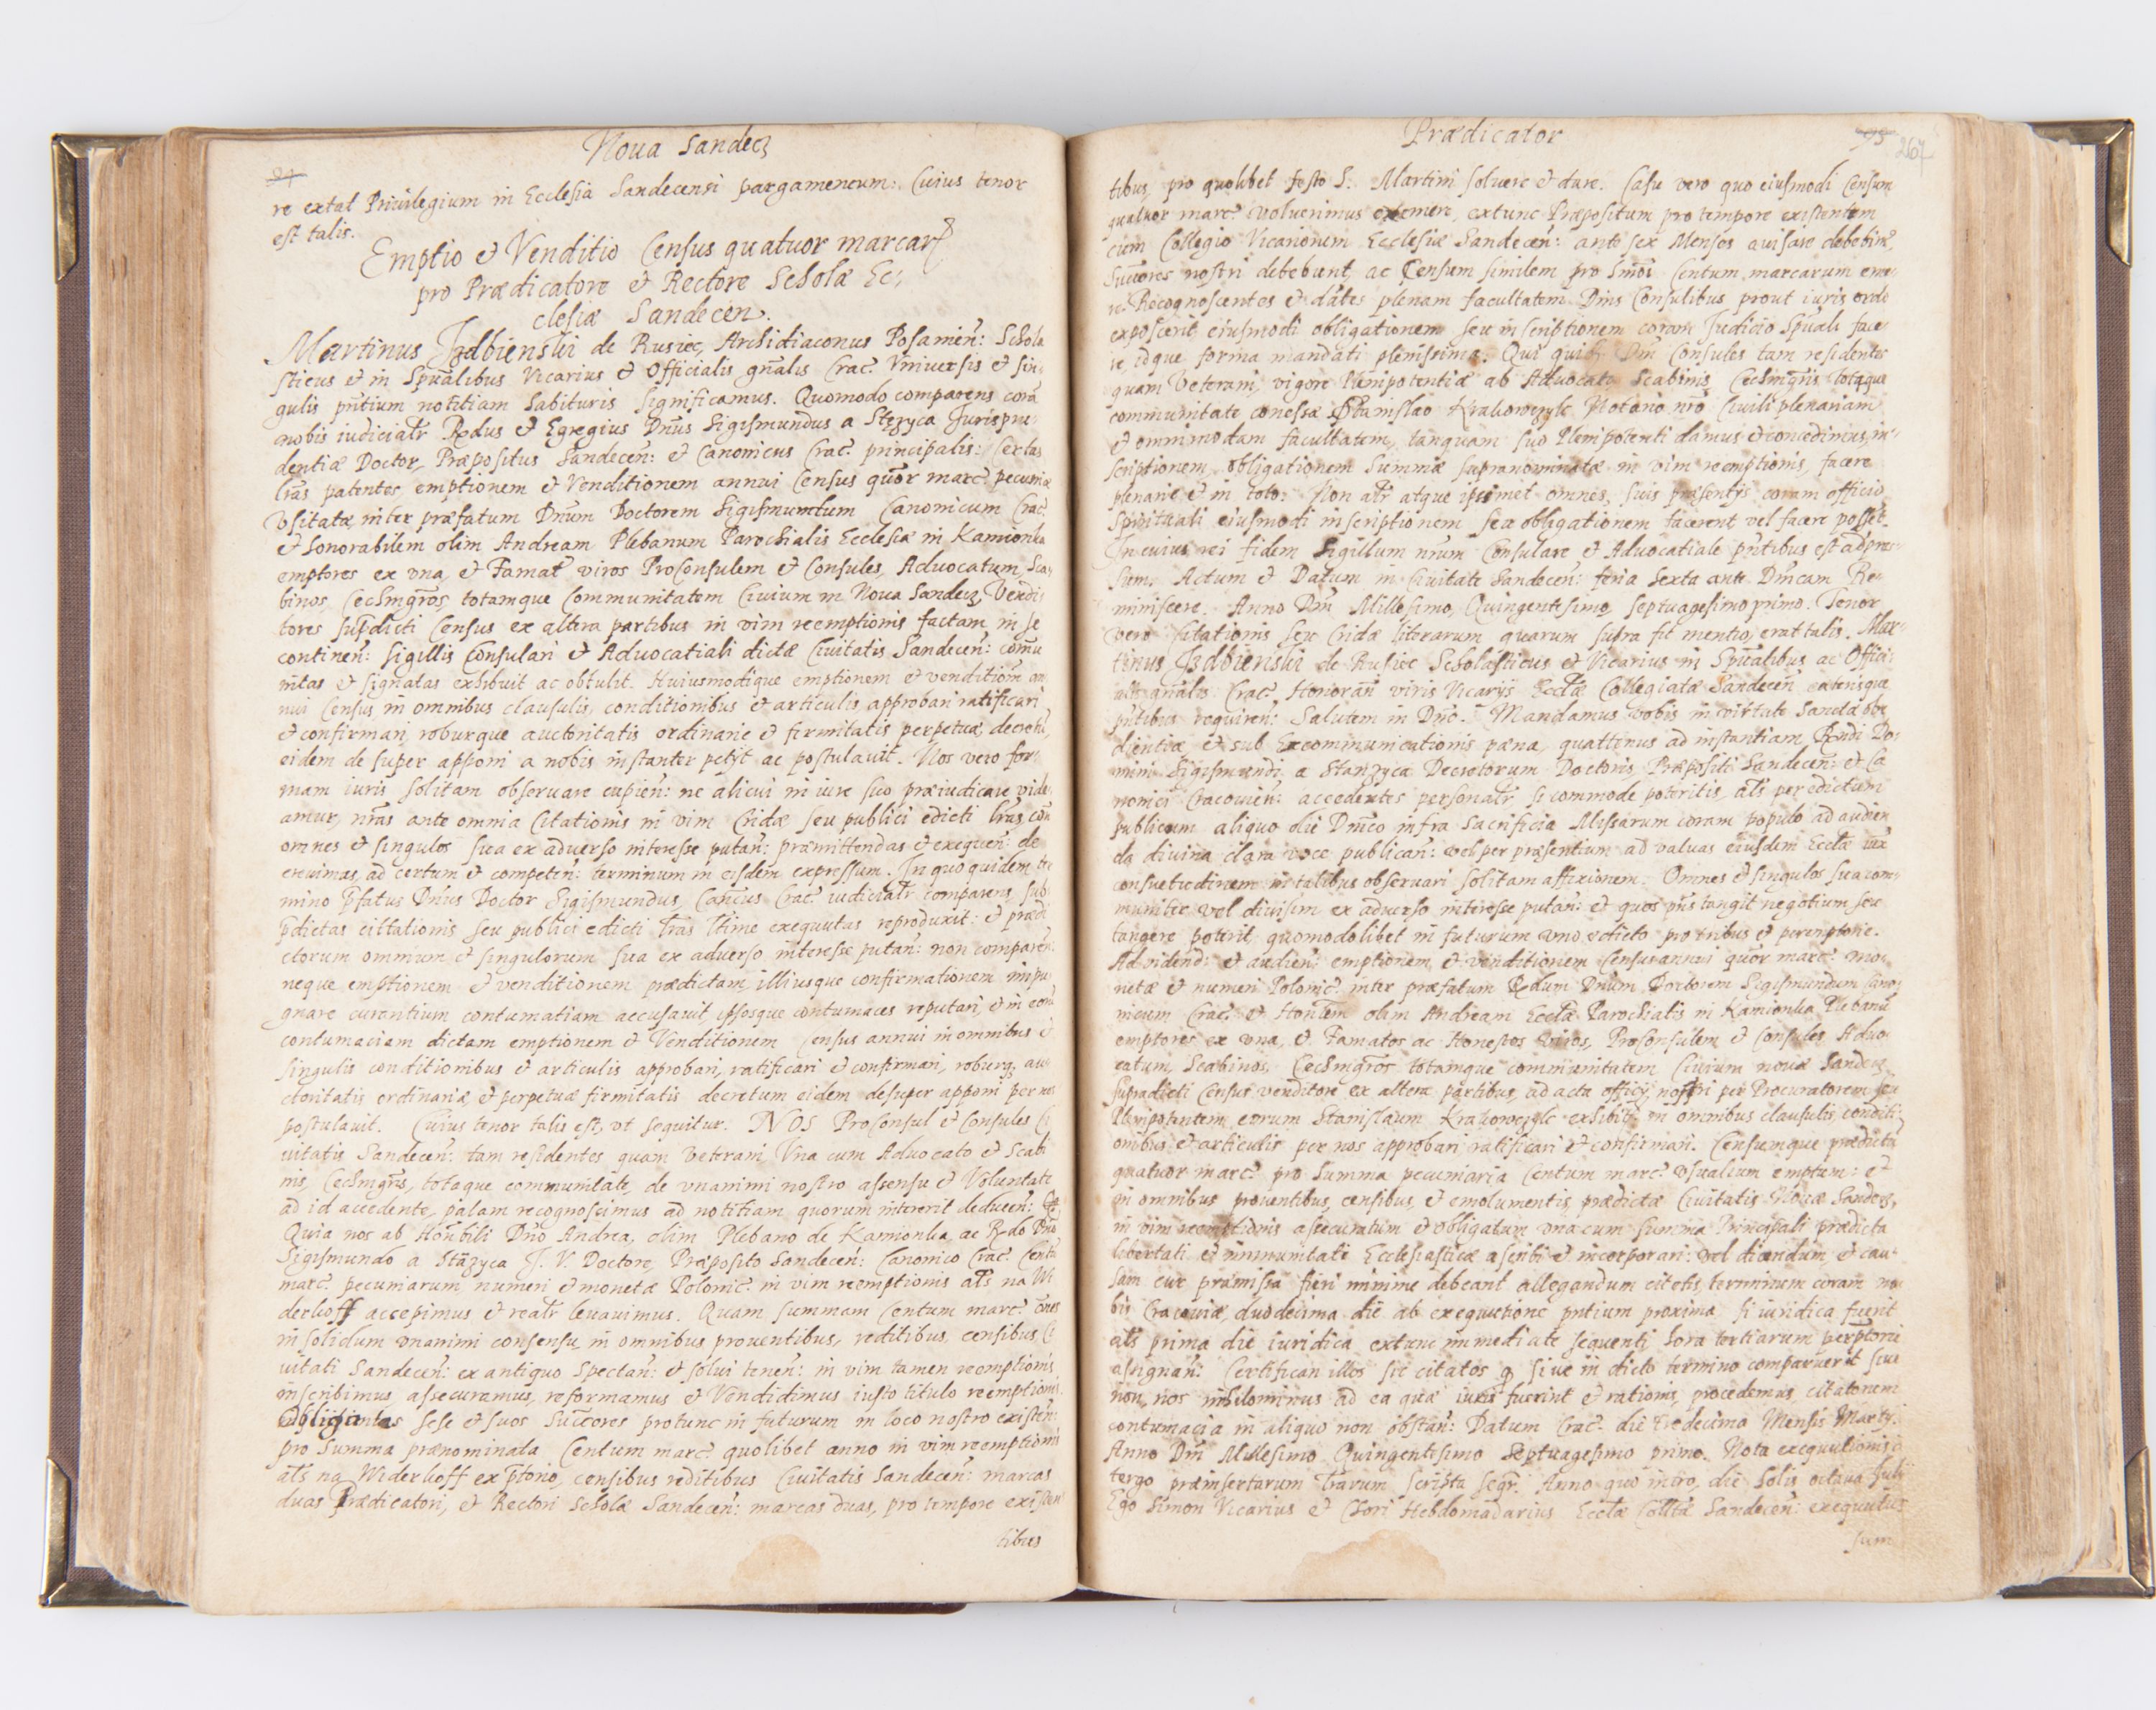 Noua Sandecz
94
re extat Priuilegium in Ecclesia Sandecensi pargameneum: Cuius tenor
est talis.
Emptio et Venditio Census quatuor marcar
pro Prædicatore et Rectore Scholæ Ec:
clesiæ Sandecen.
Martinus Izdbienski de Rusiec, Archidiaconus Posamien: Schola
sticus et in Spualibus Vicarius et Officialis gnalis Crac. Vniuersis et sin:
gulis pntium notitiam habituris significamus. Quomodo comparens cora
nobis iudicialr Rdus et Egregius Dnus Sigismundus a Stęzyca Jurispru:
dentiæ Doctor, Præpositus Sandecen: et Canonicus Crac. principalis: certas
lras patentes, emptionem et Venditionem annui Census quor marc. pecuniæ
vsitatæ, inter præfatum Dnum Doctorem Sigismundum Canonicum Crac.
et honorabilem olim Andream Plebanum Parochialis Ecclesiæ in Kamionka
emptores ex vna, et Famat viros ProConsulem et Consules, Aduocatum, Sca,
binos, Cechmgros, totamque Communitatem Ciuium in Noua Sandecz, Vendi
tores supdicti Census ex altera partibus in vim reemptionis factam, in se
continen: sigillis Consulari et Aduocatiali dictæ Ciuitatis Sandecen: comu
nitas et signatas exhibuit ac obtulit. Huiusmodique emptionem et venditiom an
nui Census in omnibus clausulis, conditionibus et articulis approbari ratificari
et confirmari, roburque auctoritatis ordinariæ et firmitatis perpetuæ, decretu,
eidem de super apponi a nobis instanter petijt ac postulauit. Nos vero for:
mam iuris solitam obseruare cupien: ne alicui in iure suo præiudicare vide,
amur, nras ante omnia Citationis in vim Cridæ seu publici edicti lras, con
omnes et singulos sua ex aduerso interesse putan: præmittendas et exequen: de
creuimus, ad certum et competen: terminum in eisdem expressum. In quo quidem ter
mino pfatus Dnus Doctor Sigismundus, Canicus Crac. iudicialr comparens, sub
pdictas cittationis seu publici edicti lras ltime exequutas reproduxit: et prædi
ctorum omnium et singulorum sua ex aduerso interesse putan: non comparen:
neque emptionem et venditionem prædictam, illiusque confirmationem impu
gnare curantium contumatiam accusauit ipsosque contumaces reputari, et in eoru
contumaciam dictam emptionem et Venditionem Census annui in omnibus et
singulis conditionibus et articulis approbari, ratificari et confirmari, roburq; au
ctoritatis ordinariæ, et perpetuæ firmitatis decretum eidem desuper apponi per nos
postulauit. Cuius tenor talis est, vt sequitur. NOS ProConsul et Consules Ci
uitatis Sandecen: tam residentes quam Veterani, Vna cum Aduocato et Scabi
nis, Cechmgris, totaque communitate, de vnanimi nostro assensu et Voluntate
ad id accedente, palam recognoscimus ad notitiam quorum intererit deducen:
Quia nos ab Honbili Dno Andrea, olim Plebano de Kamionka, ac Rdo Dno
Sigismundo a Stązyca J. V. Doctore, Præposito Sandecen: Canonico Crac. Centu
marc. pecuniarum numeri et monetæ Polonic. in vim reemptionis als na Wi
derkoff accepimus et realr leuauimus. Quam summam Centum marc. omes
in solidum vnanimi consensu, in omnibus prouentibus, reditibus, censibus Ci
uitati Sandecen: ex antiquo spectan: et solui tenen: in vim tamen reemptionis
inscribimus, assecuramus, reformamus et Vendidimus iusto titulo reemptionis.
Obligantes sese et suos Succores protunc in futurum in loco nostro existen:
pro summa prænominata Centum marc. quolibet anno in vim reemptionis
als na Widerkoff ex ptorio, censibus reditibus Ciuitatis Sandecen: marcas
duas Prædicatori, et Rectori Scholæ Sandecen: marcas duas, pro tempore existen
tibus
Prædicator
95
267
tibus, pro quolibet festo S: Martini soluere et dare. Casu vero quo eiusmodi Censum
quatuor marc. voluerimus exemere, extunc Præpositum pro tempore existentem
cum Collegio Vicariorum Ecclesiæ Sandecen: ante sex Menses auisare debebim9
Succores nostri debebunt, ac Censum similem pro Smoi Centum marcarum eme:
re. Recognoscentes et dates plenam facultatem Dnis Consulibus prout iuris ordo
exposcerit, eiusmodi obligationem seu inscriptionem coram Judicio Spuali face:
re, idque forma mandati plenissima. Qui quid: Dni Consules tam residentes
quam Veterani, vigore Plenipotentiæ ab Aduocato Scabinis, Cechmgris, totaque
communitate conessæ Stanislao Krakowczyk Notario nro Ciuili plenariam
et omnimodam facultatem, tanquam suo Plenipotenti damus et concedimus, in:
scriptionem, obligationem Summæ supranominatæ in vim reemptionis, facere
plenarie et in toto: Non alr atque ipsimet omnes, suis præsentijs coram officio
Spirituali eiusmodi inscriptionem seu obligationem facerent vel facere possēt.
In cuius rei fidem sigillum nrum Consulare et Aduocatiale pntibus est adpres:
sum. Actum et Datum in Ciuitate Sandecen: feria Sexta ante Dnicam Re:
miniscere. Anno Dni Millesimo, Quingentesimo, Septuagesimo primo. Tenor
vero Citationis seu Cridæ literarum quarum supra fit mentio, erat talis. Mar:
tinus Izdbienski de Rusiec Scholasticus et Vicarius in Spualibus ac Offici:
alis gnalis Crac. Honoran viris Vicarijs Ecclæ Collegiatæ Sandecen cæterisque
pntibus requiren: Salutem in Dno. Mandamus vobis in virtute sanctæ obe
dientiæ, et sub Excommunicationis pæna, quattenus ad instantiam Rndi Do:
mini Sigismundi a Stanzyca Decretorum Doctoris, Præpositi Sandecen: et Ca
nonici Cracouien: accedentes personalr si commode poteritis, als per edictum
publicum aliquo die Dnico infra sacrificia Missarum coram populo ad audien
da diuina clara voce publican: vel per præsentium ad valuas eiusdem Ecclæ iux
consuetudinem in talibus obseruari solitam affixionem. Omnes et singulos sua com:
muniter vel diuisim ex aduerso interesse putan: et quos pns tangit negotium seu
tangere poterit quomodolibet in futurum vno edicto pro tribus et peremptorie.
Ad vidend: et audien: emptionem et venditionem Census annui quor marc. mo:
netæ et numeri Polonic. inter præfatum Rdum Dnum Doctorem Sigismundum Cano:
nicum Crac. et Honlem olim Andream Ecclæ Parochialis in Kamionka Plebanu
emptores ex vna, et Famatos ac Honestos Viros, ProConsulem et Consules, Aduo:
catum, Scabinos, Cechmgros totamque communitatem Ciuium nouæ Sandecz
supradicti Census venditore ex altera partibus, ad acta officij nostri per Procuratorem seu
Plenipotentem eorum Stanislaum Krakowczyk exhibit: in omnibus clausulis, conditi:
onibus et articulis per nos approbari ratificari et confirmari. Censumque prædictu
quatuor marc. pro Summa pecuniaria Centum marc. vsualium emptum: et
in omnibus prouentibus, censibus, et emolumentis, prædictæ Ciuitatis Nouæ Sandecz,
in vim reemptionis assecuratum et obligatum vna cum summa Principali prædicta
libertati et immunitati Ecclesiasticæ ascribi et incorporari: vel dicendum, et cau:
sam cur præmissa fieri minime debeant allegandum citetis, terminum coram no
bis Cracouiæ, duodecima die ab exequutione pntium proxima, si iuridica fuerit
als prima die iuridica extunc immediate sequenti hora tertiarum perptorie
assignan: Certifican illos sic citatos q siue in dicto termino comparuerit siue
non, nos nihilominus ad ea quæ iuris fuerint et rationis, procedemus, citatorum
contumacia in aliquo non obstan: Datum Crac. die Tredecima Mensis Martij.
Anno Dni Millesimo Quingentesimo Septuagesimo primo. Nota exequutionis a
tergo præinsertarum lrarum scripta seqr. Anno quo intro, die Solis octaua Julij
Ego Simon Vicarius et Chori Hebdomadarius Ecclæ Colltæ Sandecen: exequutus
sum